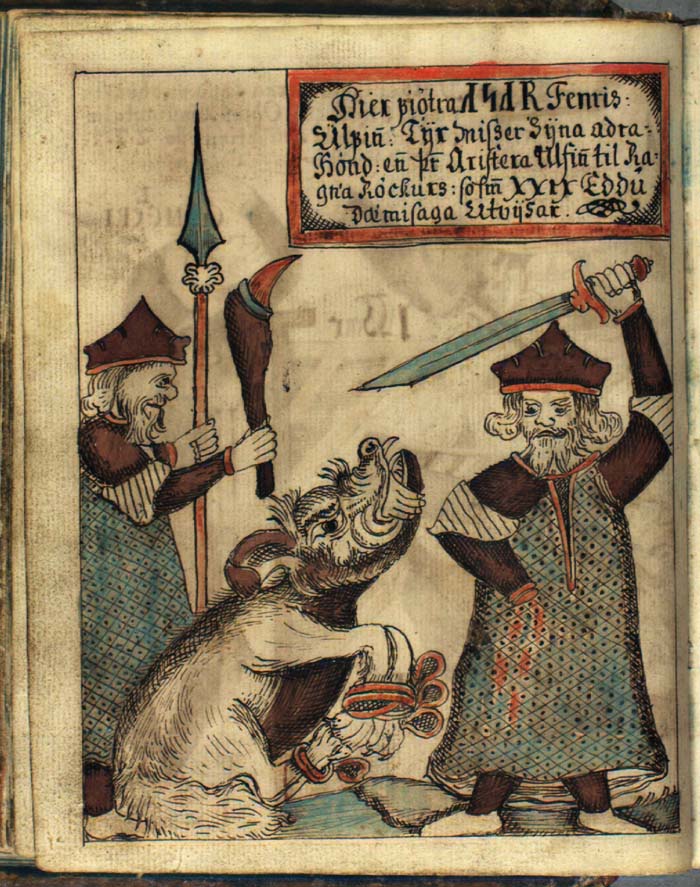 Hier piötra ASAR Fenris:
Ulpiñ: Tÿr mißer Sÿna adra-
Hönd: eñ þr Aristera Ulfiñ til Ra-
gna Röckurs: sosm̃ XXIX Eddu
Dæmisaga Utvÿsar.